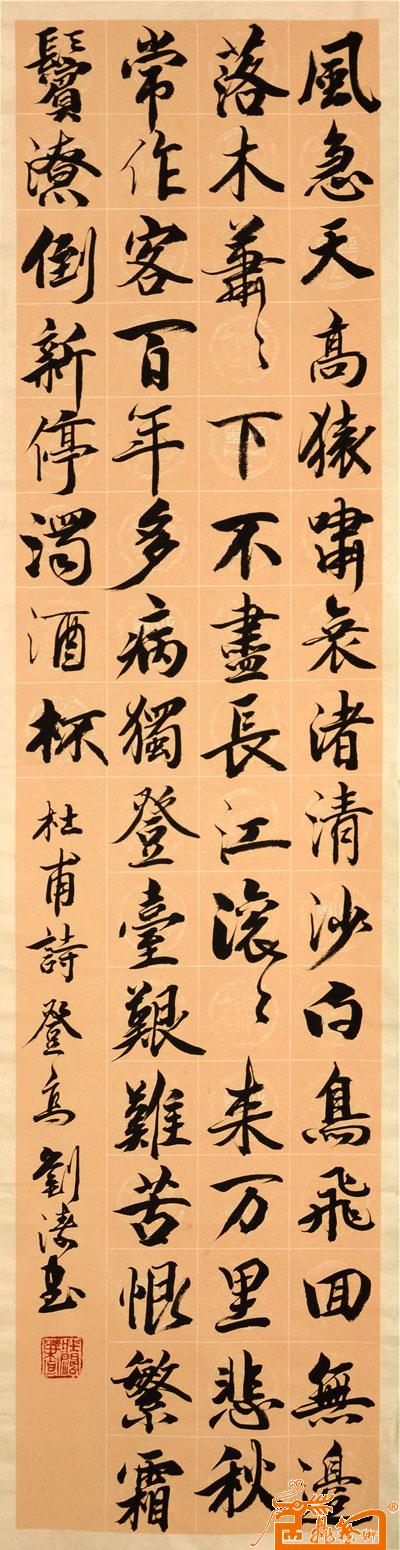 風急天高猿嘯哀渚清沙白鳥飛回無邊
落木蕭〻下不盡長江滾〻来万里悲秋
常作客百年多病獨登臺艱難苦恨繁霜
鬢潦倒新停濁酒杯
杜甫詩登高劉书